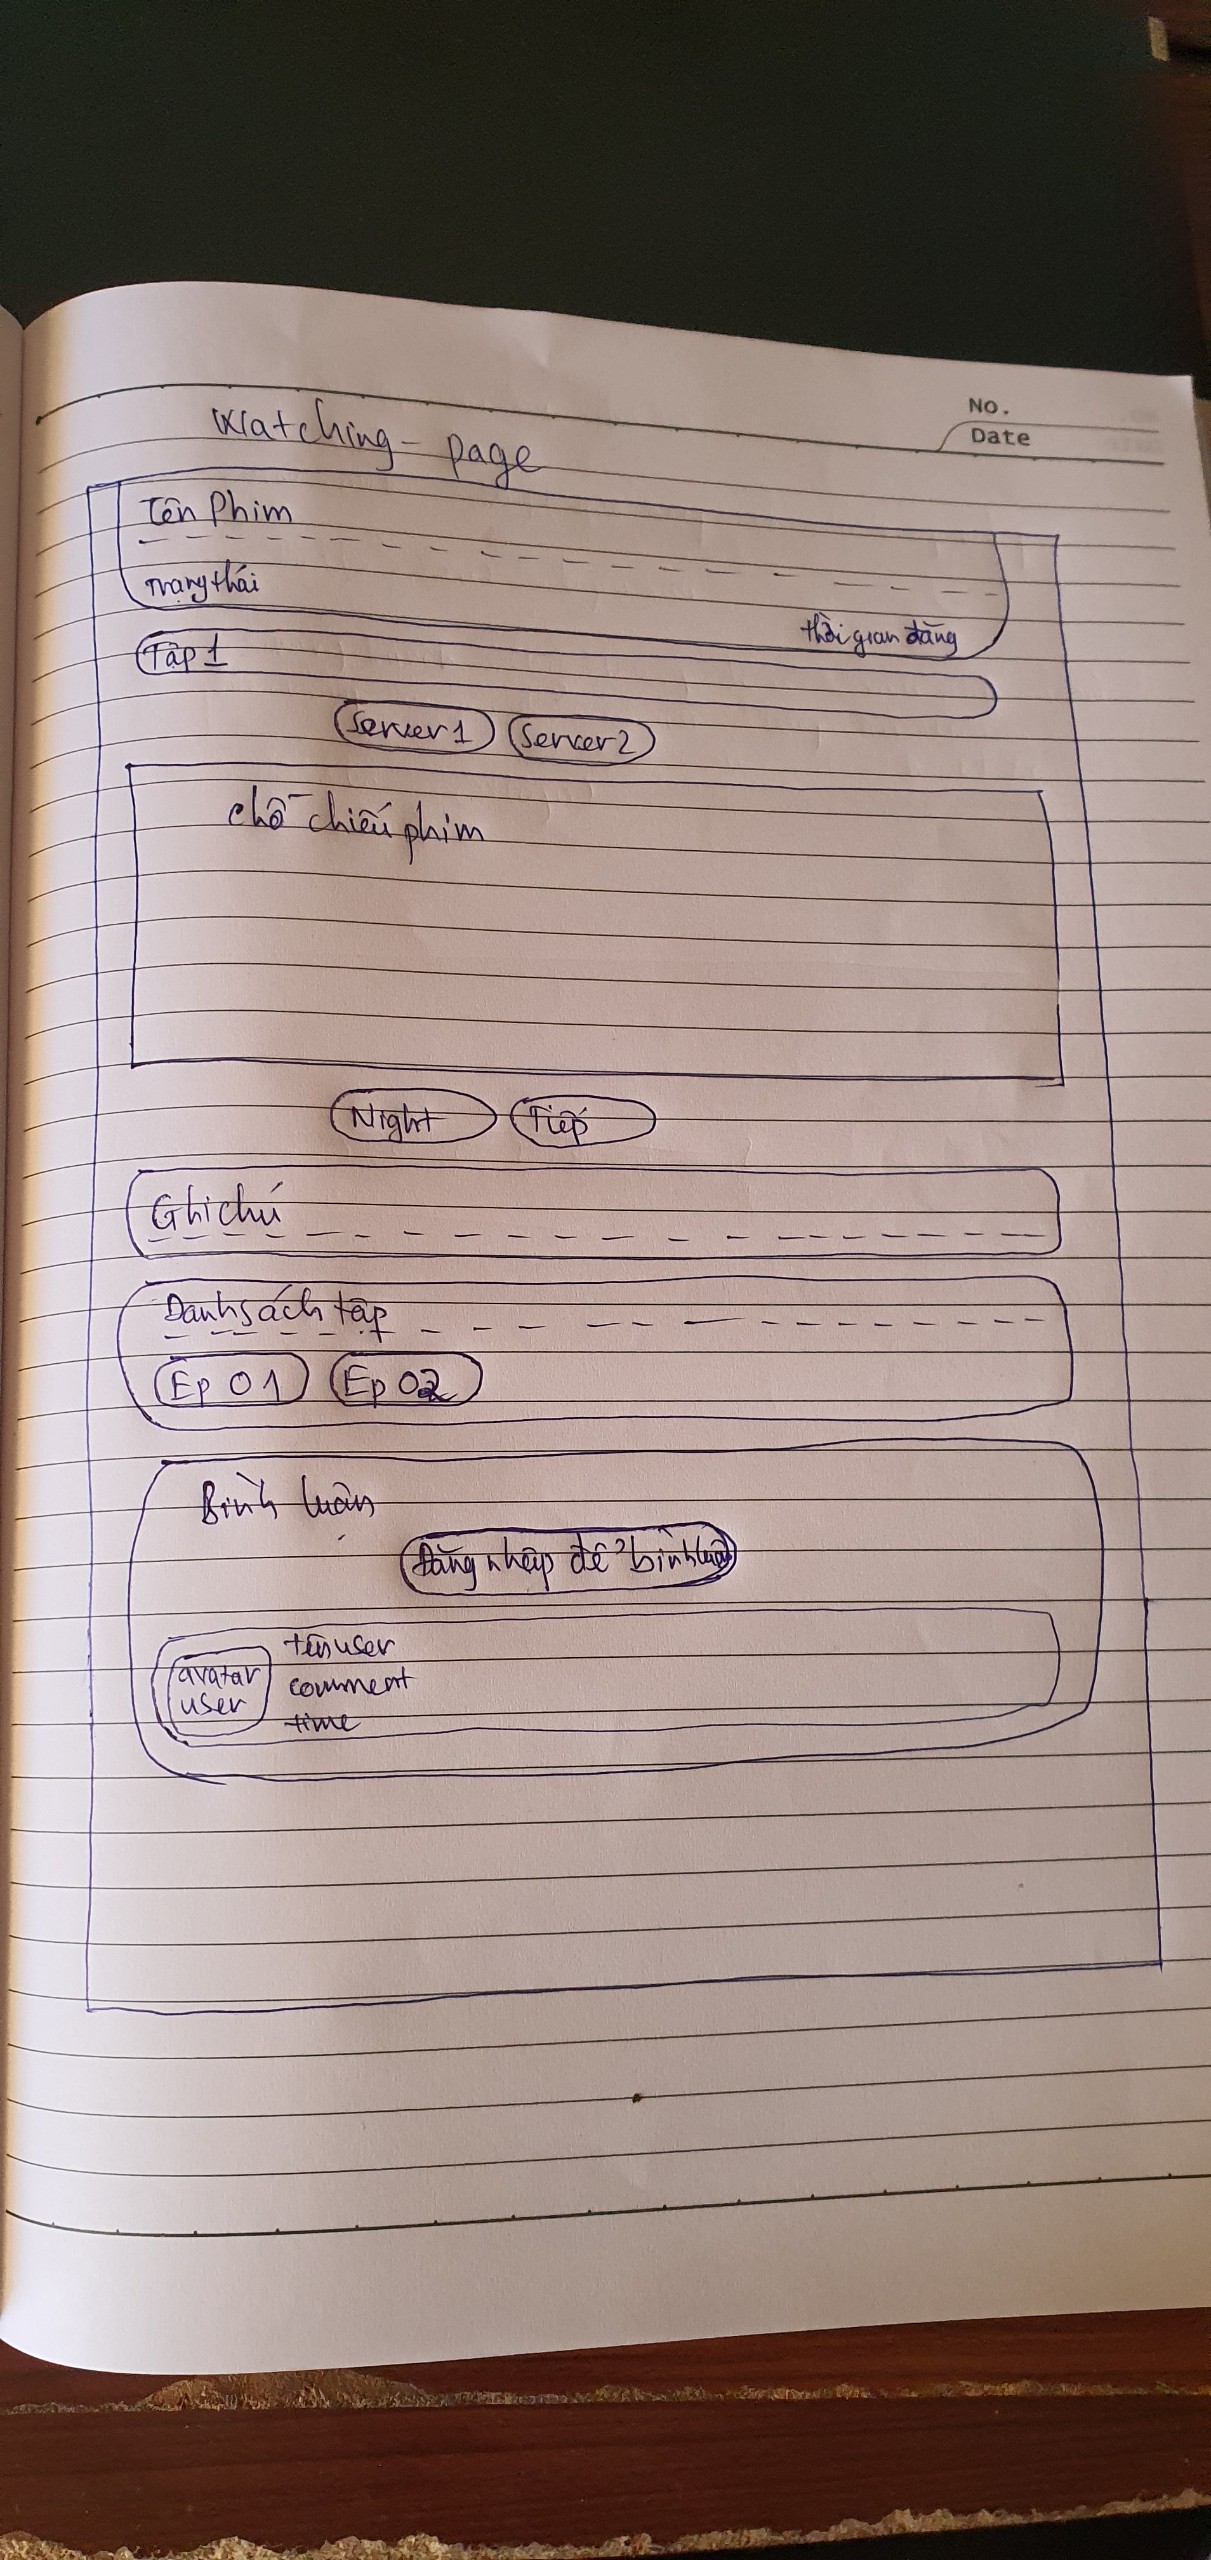 No.
Date
Watching - page
Tên Phim
Trạng thái
thời gian đăng
Tập 1
Server 1 Server 2
chỗ chiếu phim
Night Tiếp
Ghi chú
Danh sách tập
Ep 01 Ep 02
Bình luận
Đăng nhập để bình luận
avatar user
tên user
comment
time